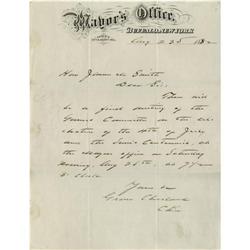 Mayor's Office,
BUFFALO, NEW YORK
Aug 23d 1882
Hon James M. Smith
Dear Sir:
There will
be a joint meeting of the
General Committee on the cele-
bration of the 4th of July
and the Semi Centennial, at
the Mayors office on Saturday
Evening, Aug 26th, at 7 1/2
o'clock
Yours &c
Grover Cleveland
Chn